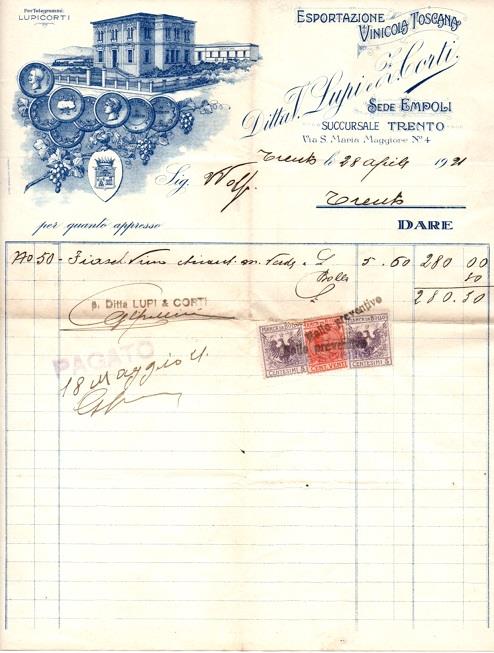 Per Telegrammi:
LUPICORTI
ESPORTAZIONE
VINICOLA TOSCANA
Ditta V. Lupi & Corti.
SEDE EMPOLI
SUCCURSALE TRENTO
Via S. Maria Maggiore No 4
Trento li 28 aprile 1921
Sig. Wolf
Trento
per quanto appresso
DARE
No 50 - Fiaschi Vino 5.60 280 00
Bollo 50
280.50
p. Ditta LUPI & CORTI
MARCA DA BOLLO
MARCA DA BOLLO
Bollo preventivo
Bollo preventivo
CENTESIMI 5
CENT. VENTI
CENTESIMI 5
PAGATO
18 Maggio 21.